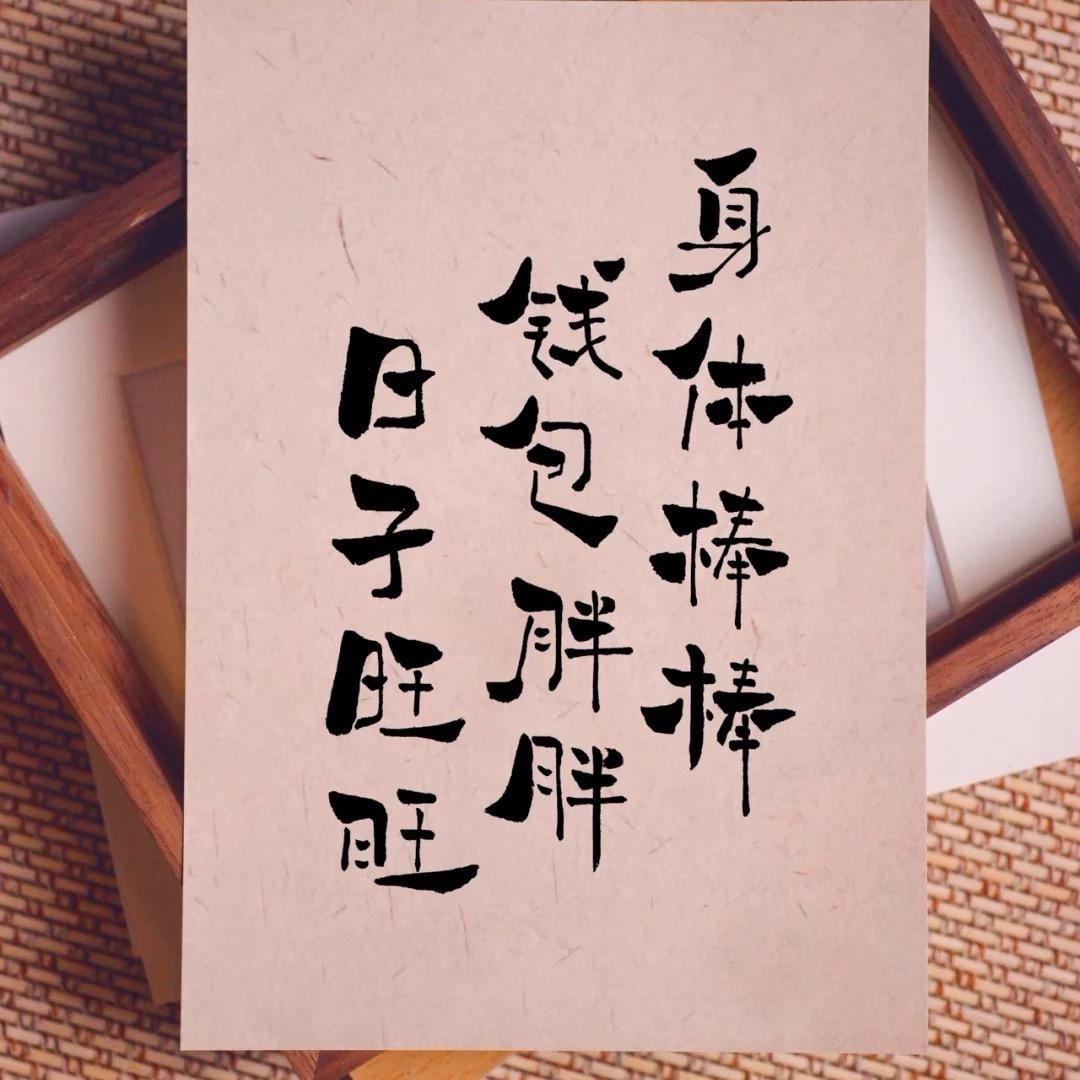 身体棒棒
钱包胖胖
日子旺旺